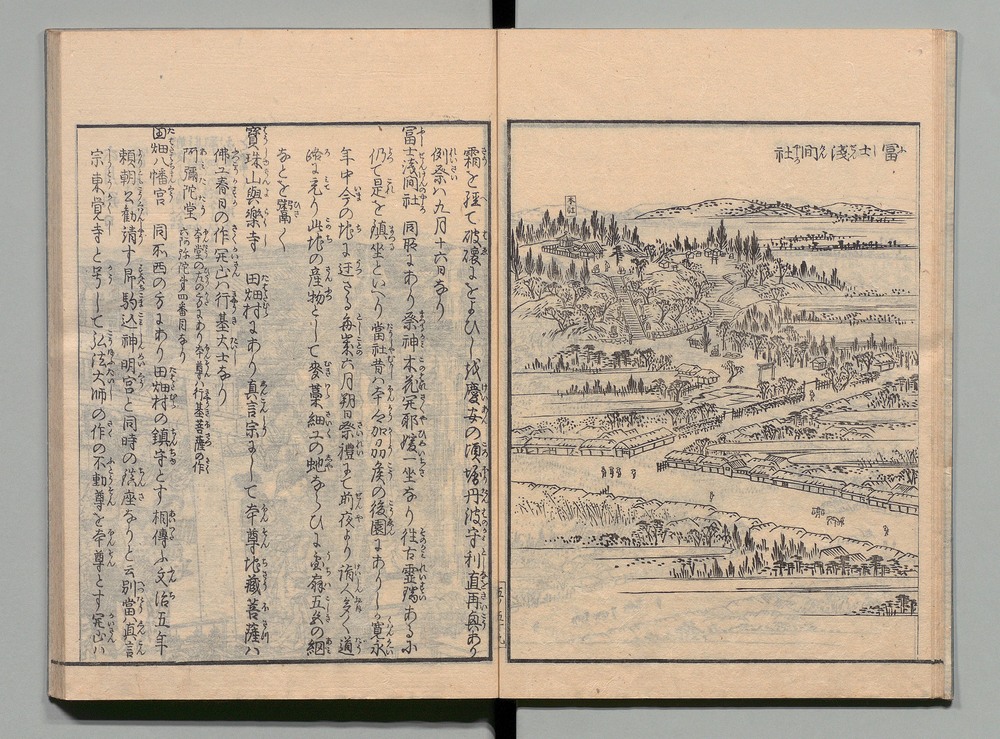 冨士浅間社
本社
霜を経て破壊におよひしを慶安の頃堀丹波守利直再興あり
例祭ハ九月十六日なり
冨士浅間社　同所にあり祭神木花開耶媛一坐なり往古霊瑞あるに
仍て是を鎮坐といへり當社昔ハ本郷加州侯の後園にありしを寛永
年中今の地に迁さる毎歳六月朔日祭禮にて前夜より諸人多く道
路に充り此地の産物として麥藁細工の蛇ならひに団扇五色の網
なとを鬻く
寳珠山與樂寺　田畑村にあり真言宗にして本尊地藏菩薩ハ
佛工春日の作開山ハ行基大士なり
阿彌陀堂　本堂の左の方にあり本尊ハ行基菩薩の作
六阿弥陀第四番目なり
田畑八幡宮　同所西の方にあり田畑村の鎮守とす相傳ふ文治五年
頼朝公勧請す昂駒込神明宮と同時の鎮座なりと云別當真言
宗東覚寺と号して弘法大師の作の不動尊を本尊とす開山ハ